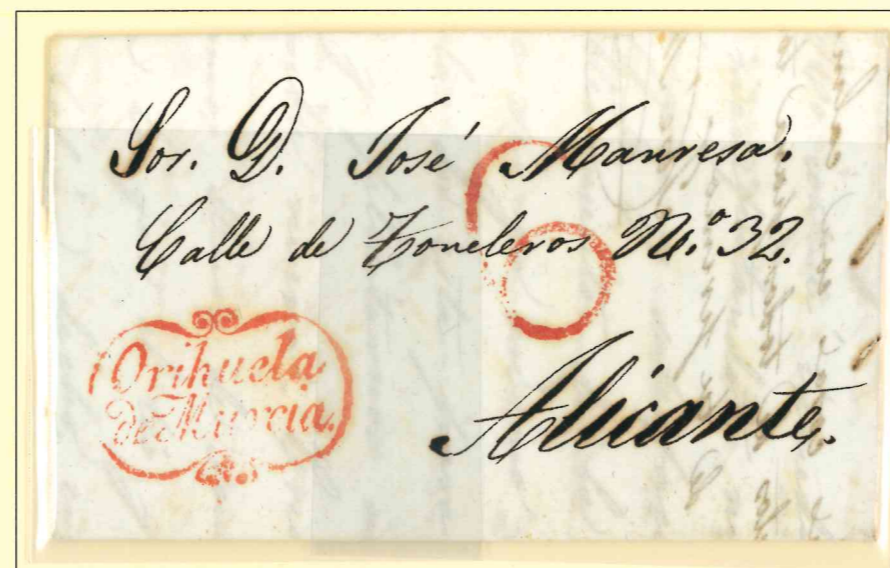 Sor. D. José Manresa.
Calle de Toneleros N.º 32.
6
Orihuela
de Murcia.
Alicante.